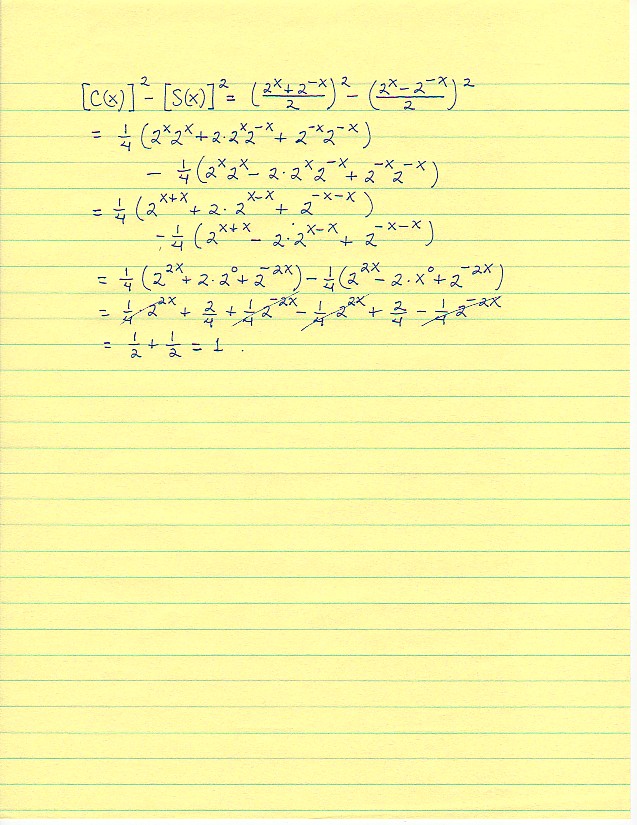 [C(x)]² - [S(x)]² = ((2^x + 2^-x)/2)² - ((2^x - 2^-x)/2)²
= 1/4 (2^x 2^x + 2·2^x 2^-x + 2^-x 2^-x)
- 1/4 (2^x 2^x - 2·2^x 2^-x + 2^-x 2^-x)
= 1/4 (2^(x+x) + 2·2^(x-x) + 2^(-x-x))
- 1/4 (2^(x+x) - 2·2^(x-x) + 2^(-x-x))
= 1/4 (2^2x + 2·2^0 + 2^-2x) - 1/4 (2^2x - 2·x^0 + 2^-2x)
= 1/4 2^2x + 2/4 + 1/4 2^-2x - 1/4 2^2x + 2/4 - 1/4 2^-2x
= 1/2 + 1/2 = 1 .